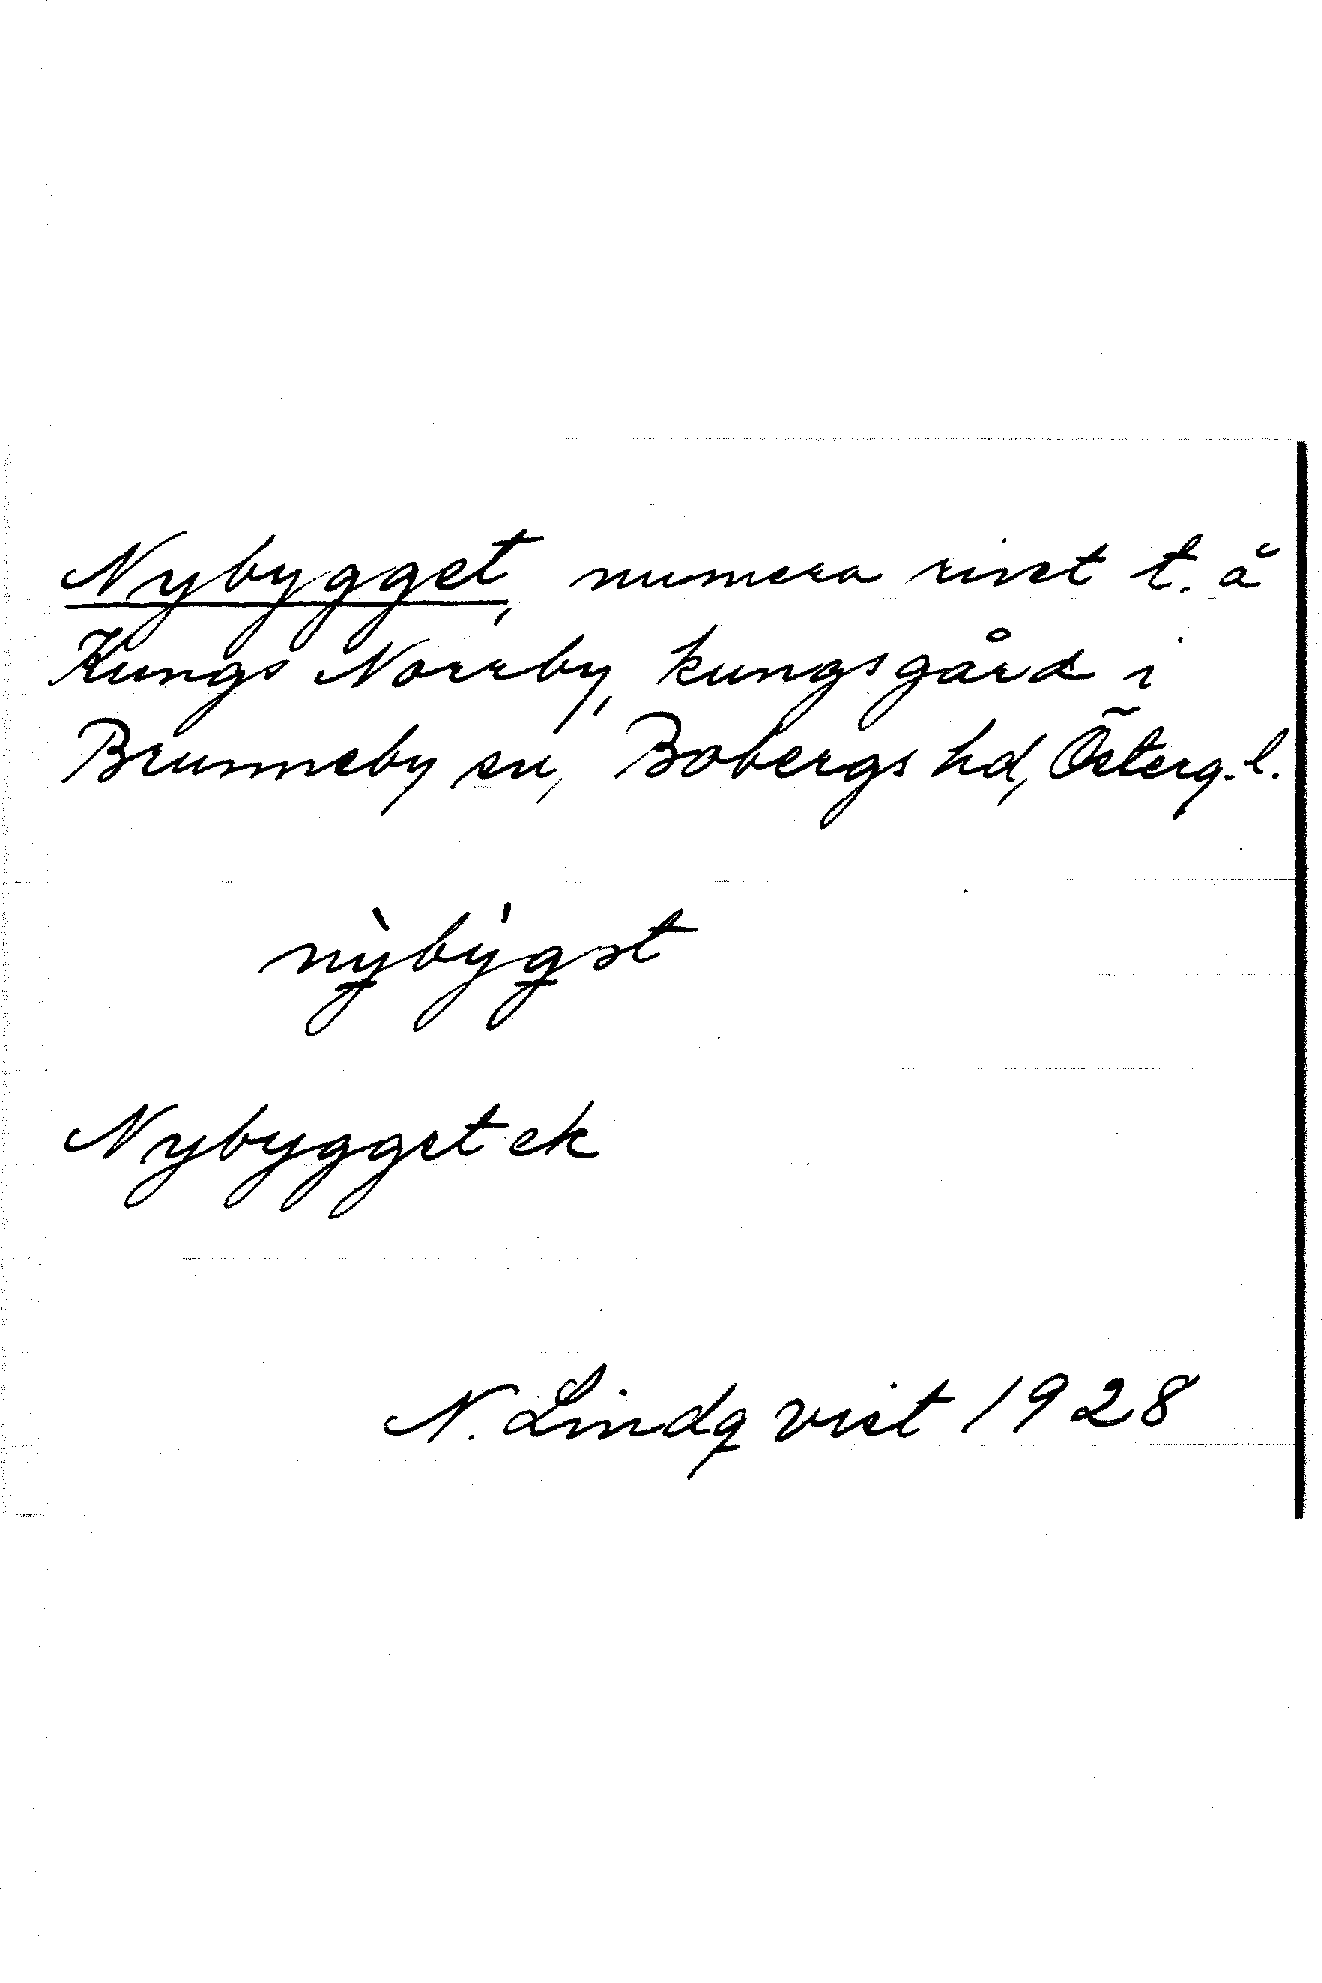 Nybygget, numera rivet t. å
Kungs Norrby, kungsgård i
Brunneby sn, Bobergs hd, Österg.l.
nỳbýgət
Nybygget ek
N. Lindqvist 1928